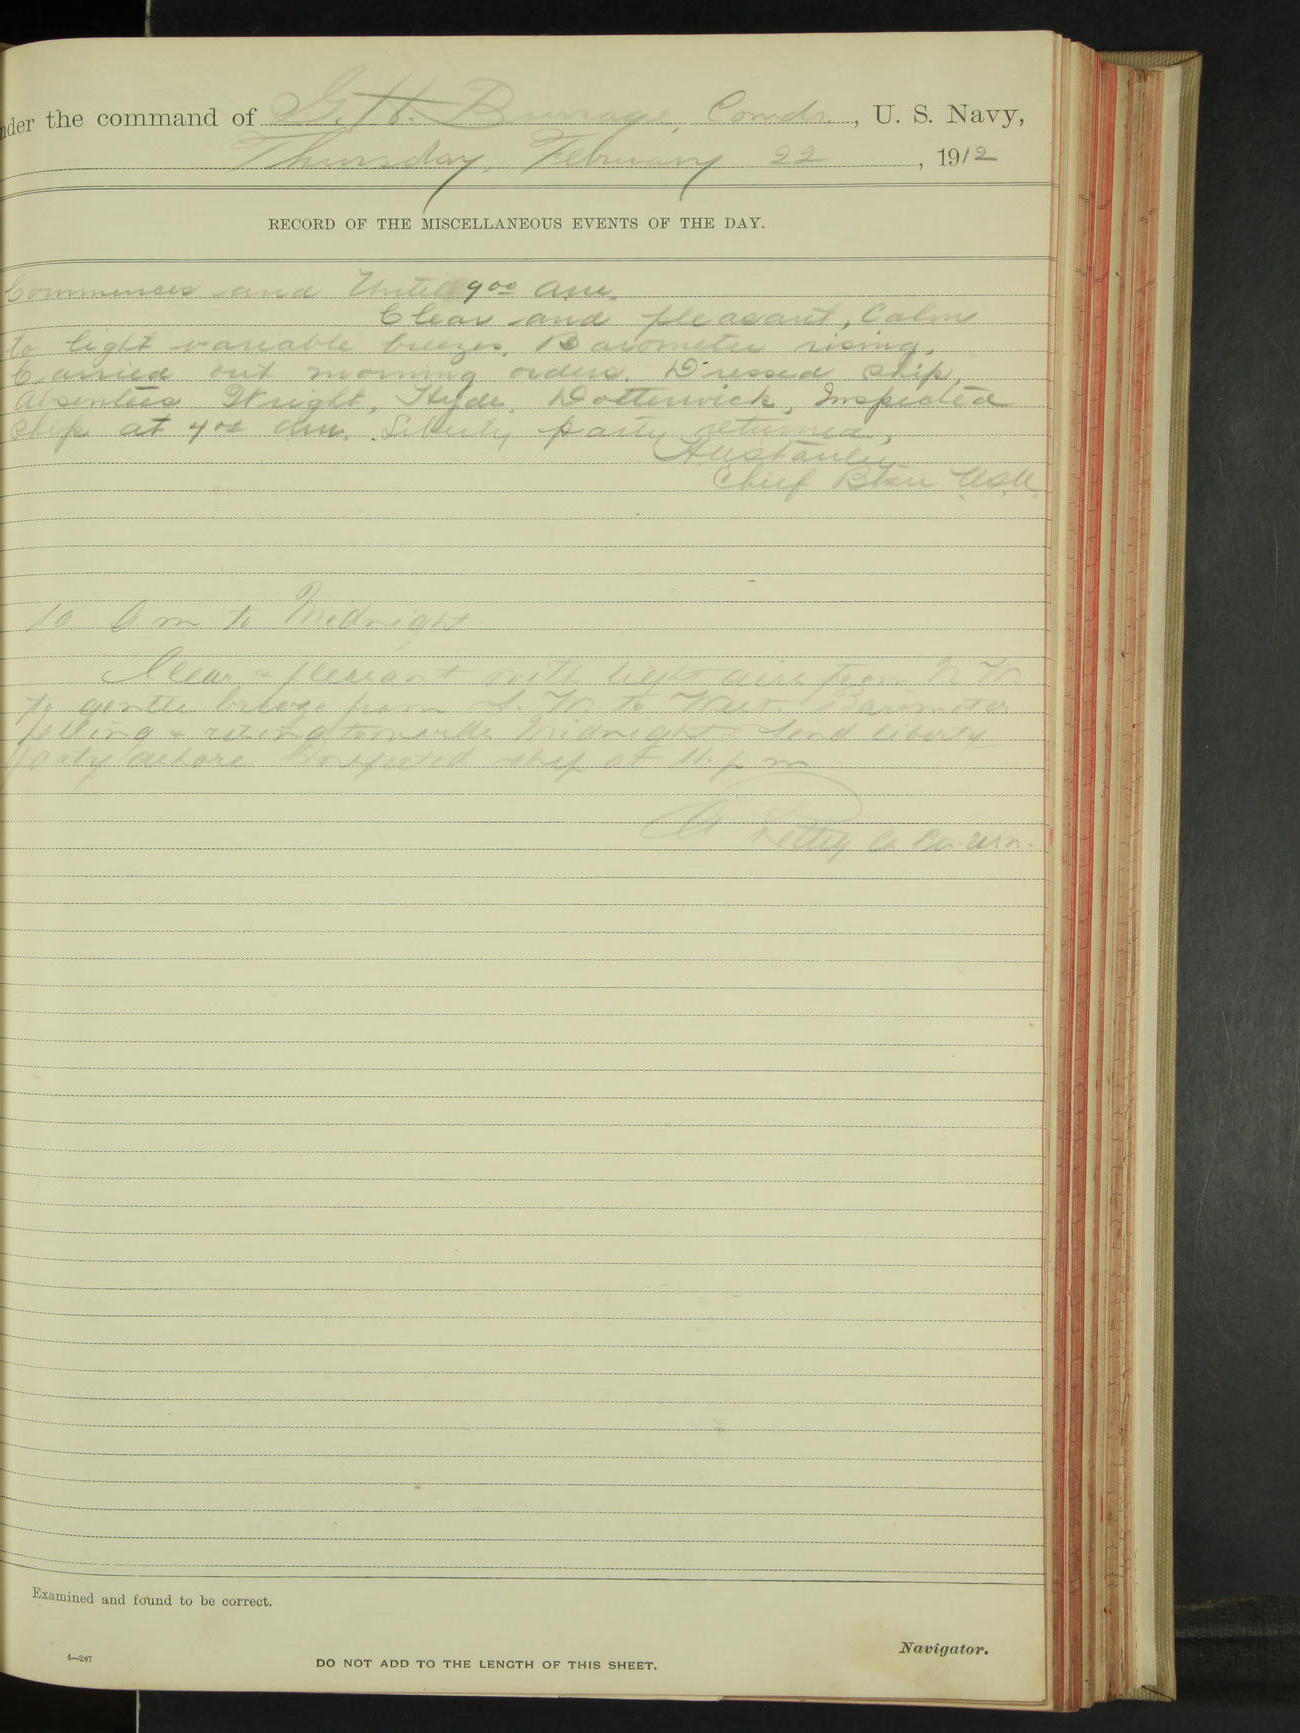 nder the command of G. H. Burrage, Comdr., U. S. Navy,
Thursday, February 22, 1912
RECORD OF THE MISCELLANEOUS EVENTS OF THE DAY.
Commences and Until 9 00 am.
Clear and pleasant, Calm
to light variable breezes. Barometer rising.
Carried out morning orders. Dressed ship.
Absentees Wright, Hyde, Dotterwick, Inspected
ship at 9 00 am. Liberty party returned,
Chief Btsn USN.
10 Am to Midnight
Clear & pleasant with light airs from N W
to gentle breeze from S. W. to West. Barometer
falling & rising towards Midnight. Send liberty
party ashore. Inspected ship at 11. p m
Pettey C. Bn. USN.
Examined and found to be correct.
Navigator.
4—287
DO NOT ADD TO THE LENGTH OF THIS SHEET.